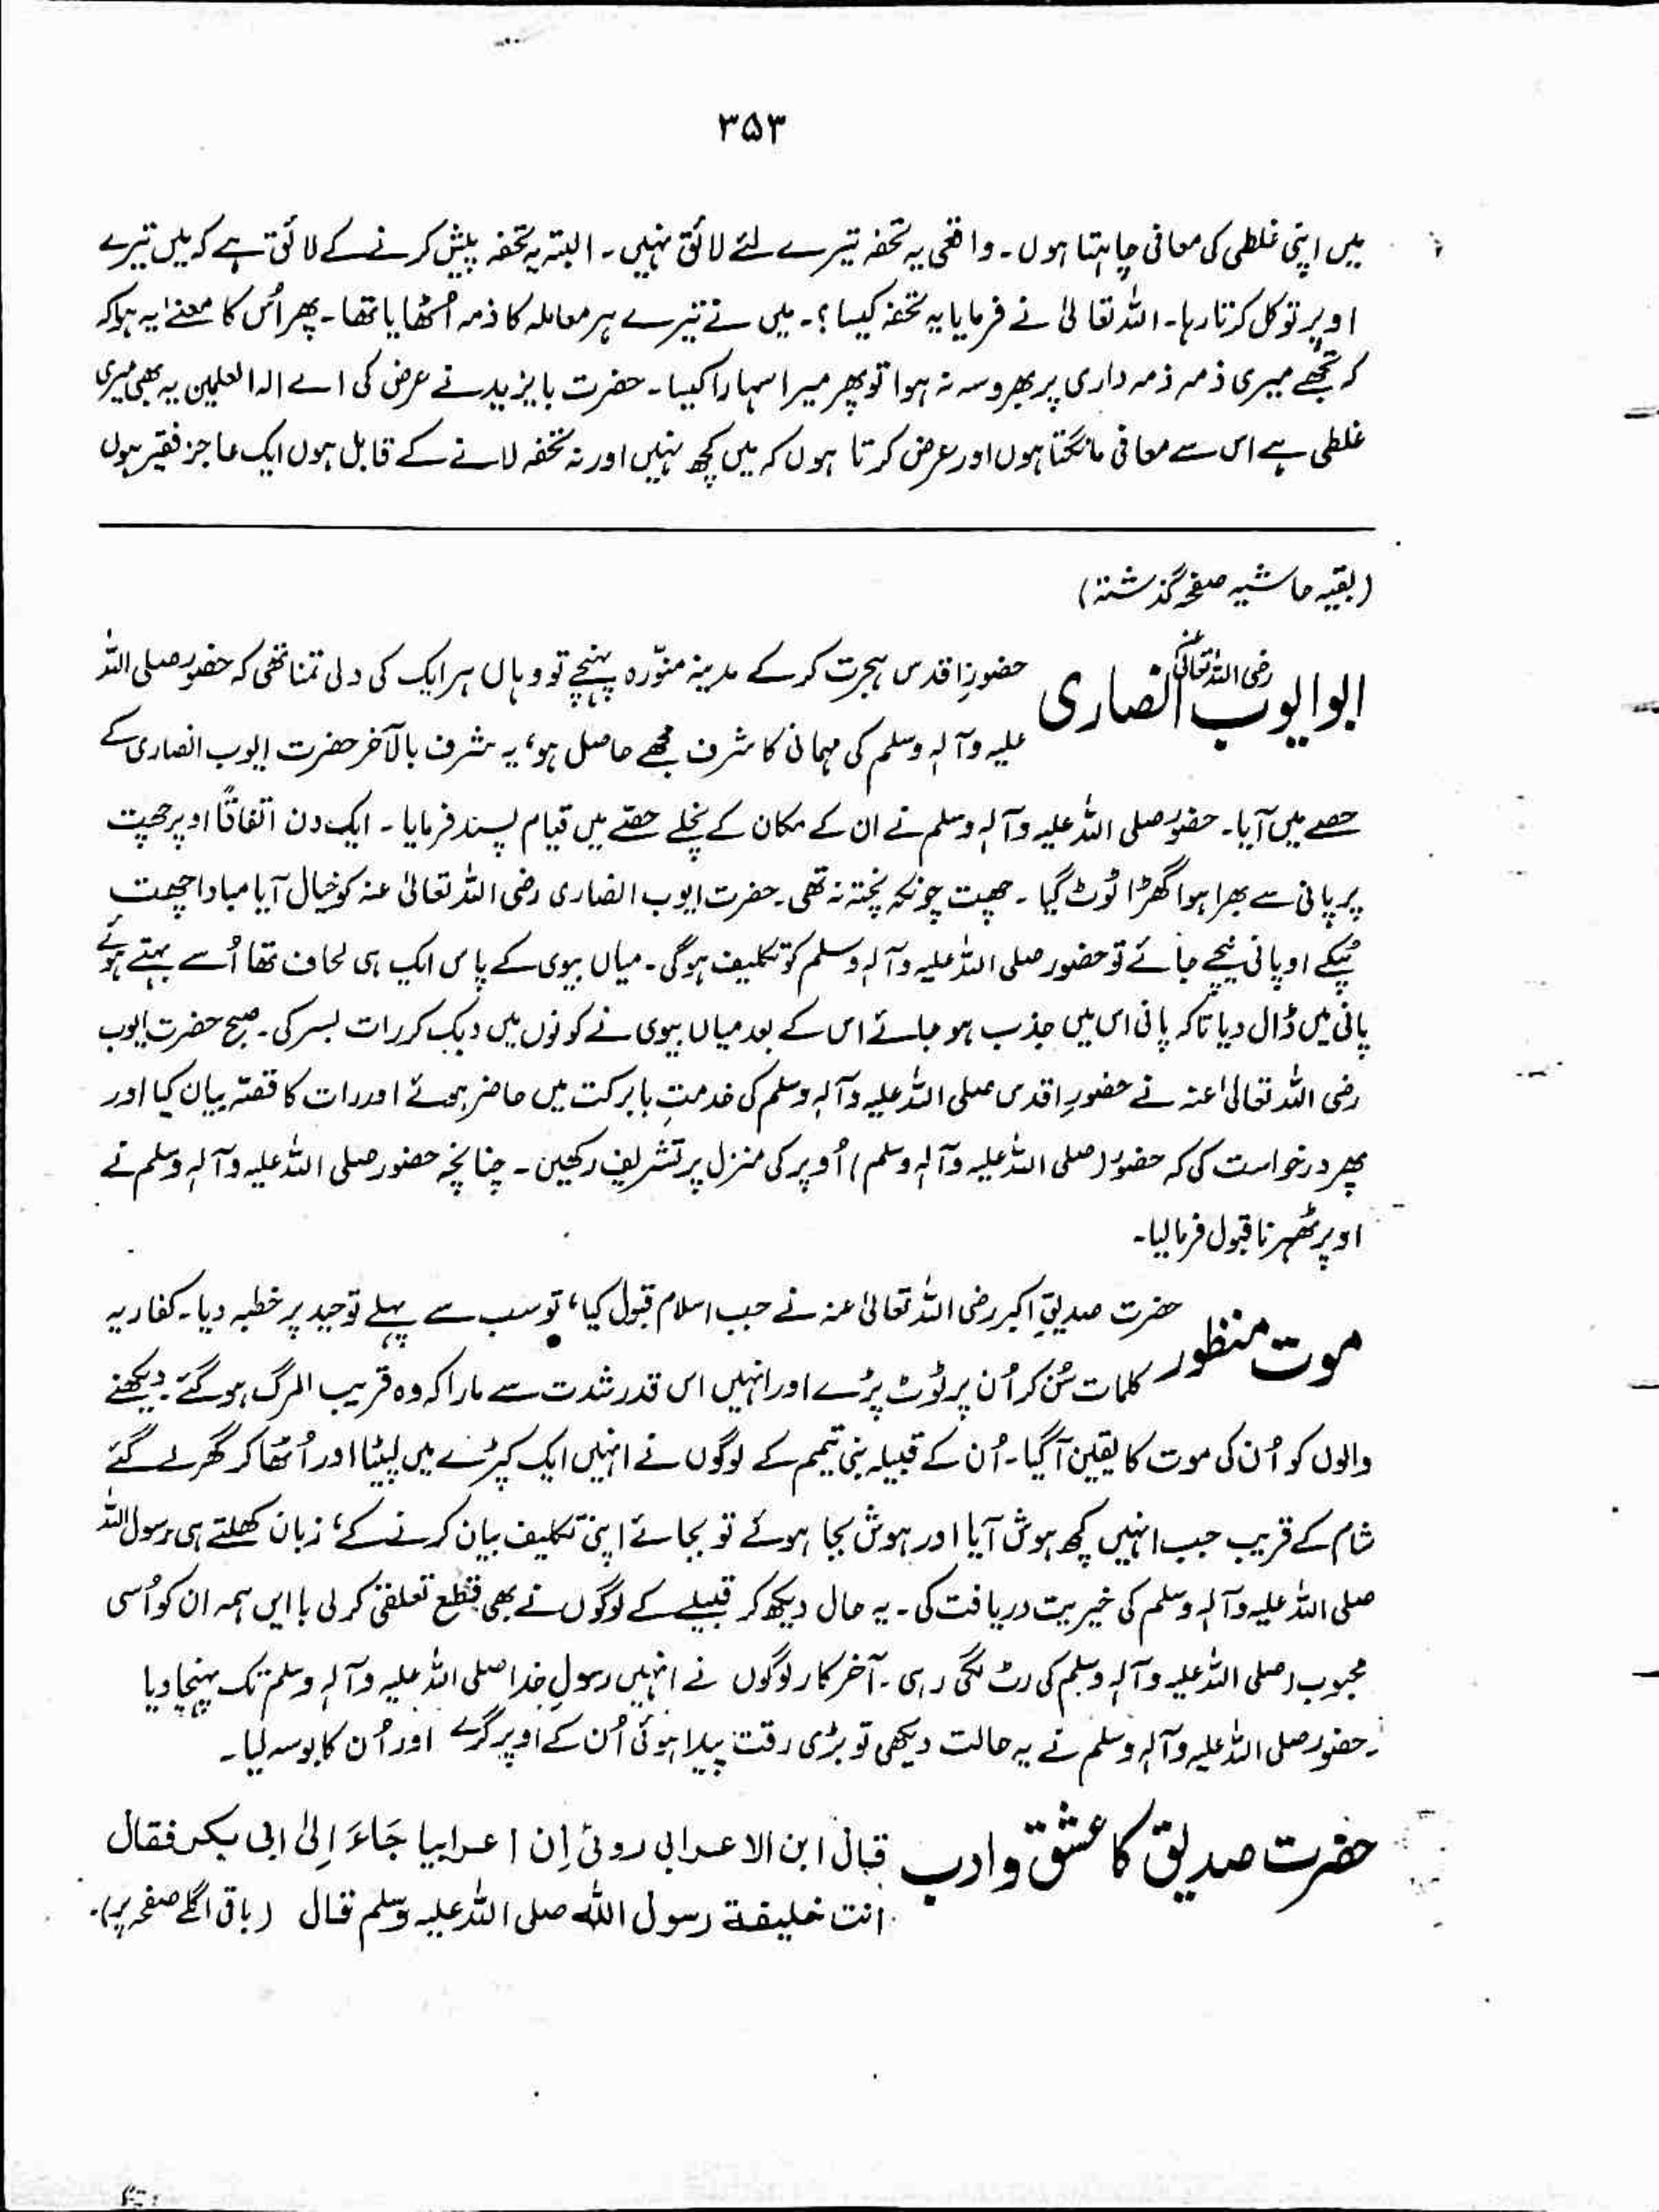 ۳۵۳
میں اپنی غلطی کی معافی چاہتا ہوں۔ واقعی یہ تحفہ تیرے لئے لائق نہیں۔ البتہ یہ تحفہ پیش کرنے کے لائق ہے کہ میں تیرے
اوپر توکل کرتا رہا۔ اللہ تعالیٰ نے فرمایا یہ تحفہ کیسا؟۔ میں نے تیرے ہر معاملہ کا ذمہ اُٹھایا تھا۔ پھر اُس کا معنےٰ یہ ہوا کہ
کہ تجھے میری ذمہ ذمہ داری پر بھروسہ نہ ہوا تو پھر میرا سہارا کیسا۔ حضرت بایزید نے عرض کی اے الہ العلمین یہ بھی میری
غلطی ہے اس سے معافی مانگتا ہوں اور عرض کرتا ہوں کہ میں کچھ نہیں اور نہ تحفہ لانے کے قابل ہوں ایک عاجز فقیر ہوں
(بقیہ حاشیہ صفحہ گذشتہ)
ابوایوب انصاری رضی اللہ تعالیٰ عنہ
حضورِ اقدس ہجرت کر کے مدینہ منوّرہ پہنچے تو وہاں ہر ایک کی دلی تمنا تھی کہ حضور صلی اللہ
علیہ وآلہٖ وسلم کی مہمانی کا شرف مجھے حاصل ہو، یہ شرف بالآخر حضرت ایوب انصاری کے
حصے میں آیا۔ حضور صلی اللہ علیہ وآلہٖ وسلم نے ان کے مکان کے نچلے حصّے میں قیام پسند فرمایا۔ ایک دن اتفاقًا اوپر چھت
پر پانی سے بھرا ہوا گھڑا ٹوٹ گیا۔ چھت چونکہ پختہ نہ تھی۔ حضرت ایوب انصاری رضی اللہ تعالیٰ عنہ کو خیال آیا مبادا چھت
ٹپکے او پانی نیچے جائے تو حضور صلی اللہ علیہ وآلہٖ وسلم کو تکلیف ہوگی۔ میاں بیوی کے پاس ایک ہی لحاف تھا اُسے بہتے ہوئے
پانی میں ڈال دیا تاکہ پانی اس میں جذب ہو جائے اس کے بعد میاں بیوی نے کونوں میں دبک کر رات بسر کی۔ صبح حضرت ایوب
رضی اللہ تعالیٰ عنہ نے حضورِ اقدس صلی اللہ علیہ وآلہٖ وسلم کی خدمتِ بابرکت میں حاضر ہوئے اور رات کا قصّہ بیان کیا اور
پھر درخواست کی کہ حضور (صلی اللہ علیہ وآلہٖ وسلم) اُوپر کی منزل پر تشریف رکھیں۔ چنانچہ حضور صلی اللہ علیہ وآلہٖ وسلم نے
اوپر ٹھہرنا قبول فرما لیا۔
موت منظور
حضرت صدیقِ اکبر رضی اللہ تعالیٰ عنہ نے جب اسلام قبول کیا، تو سب سے پہلے توحید پر خطبہ دیا۔ کفار یہ
کلمات سُن کر اُن پر ٹوٹ پڑے اور انہیں اس قدر شدت سے مارا کہ وہ قریب المرگ ہو گئے۔ دیکھنے
والوں کو اُن کی موت کا یقین آگیا۔ اُن کے قبیلہ بنی تیمم کے لوگوں نے انہیں ایک کپڑے میں لپیٹا اور اُٹھا کر گھر لے گئے
شام کے قریب جب انہیں کچھ ہوش آیا اور ہوش بجا ہوئے تو بجائے اپنی تکلیف بیان کرنے کے، زبان کھلتے ہی رسول اللہ
صلی اللہ علیہ وآلہٖ وسلم کی خیریت دریافت کی۔ یہ حال دیکھ کر قبیلے کے لوگوں نے بھی قطع تعلقی کر لی باایں ہمہ ان کو اُسی
محبوب (صلی اللہ علیہ وآلہٖ وسلم کی رٹ لگی رہی۔ آخر کار لوگوں نے انہیں رسولِ خدا صلی اللہ علیہ وآلہٖ وسلم تک پہنچا دیا
۔حضور صلی اللہ علیہ وآلہٖ وسلم نے یہ حالت دیکھی تو بڑی رقت پیدا ہوئی اُن کے اوپر گرے اور اُن کا بوسہ لیا۔
حضرت صدیق کا عشق و ادب
قال ابن الاعرابی روئ اِن اعرابیا جَاءَ اِلیٰ ابی بکر فقال
انت خلیفۃ رسول اللّٰہ صلی اللہ علیہ وسلم قال (باقی اگلے صفحہ پر)۔